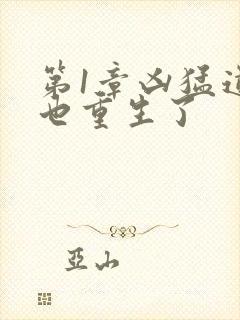 第1章凶猛道
也重生了
亞山